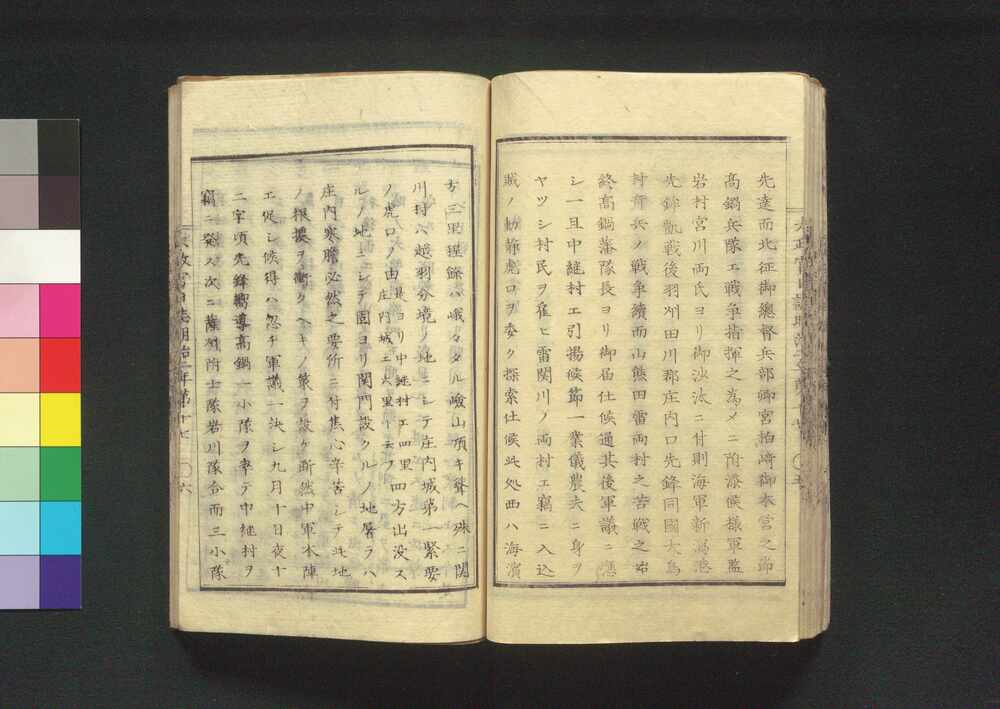 先達而北征御總督兵部卿宮柏崎御本営之節
高鍋兵隊エ戦争指揮之為メニ附添候様軍監
岩村宮川両氏ヨリ御沙汰ニ付則海軍新潟港
先鋒凱戦後羽州田川郡庄内口先鋒同國大鳥
村賊兵ノ戦争續而山熊田雷両村之苦戦之始
終高鍋藩隊長ヨリ御届仕候通其後軍議ニ應
シ一旦中継村エ引揚候節一業儀農夫ニ身ヲ
ヤツシ村民ヲ雇ヒ雷関川ノ両村エ竊ニ入込
賊ノ動静虎口ヲ委ク探索仕候此処西ハ海濱
方三里程餘ハ峨々タル嶮山頂キ聳ヘ殊ニ関
川村ハ越羽分境ノ地ニシテ庄内城第一緊要
ノ虎口ノ由是ヨリ中継村エ四里四方出没ス
庄内城エ六里ト云フ
ルノ地ニシテ固ヨリ関門設クルノ地暑ラハ
庄内寒膽必然之要所ニ付焦心辛苦シテ此地
ノ根據ヲ衝クヘキノ策ヲ設ケ断然中軍本陣
エ促シ候得ハ忽チ軍議一決シ九月十日夜十
二字頃先鋒嚮導高鍋一小隊ヲ率テ中継村ヲ
竊ニ発ス次ニ薩州附士隊岩川隊合而三小隊
太政官日誌明治二年第十七 〇六